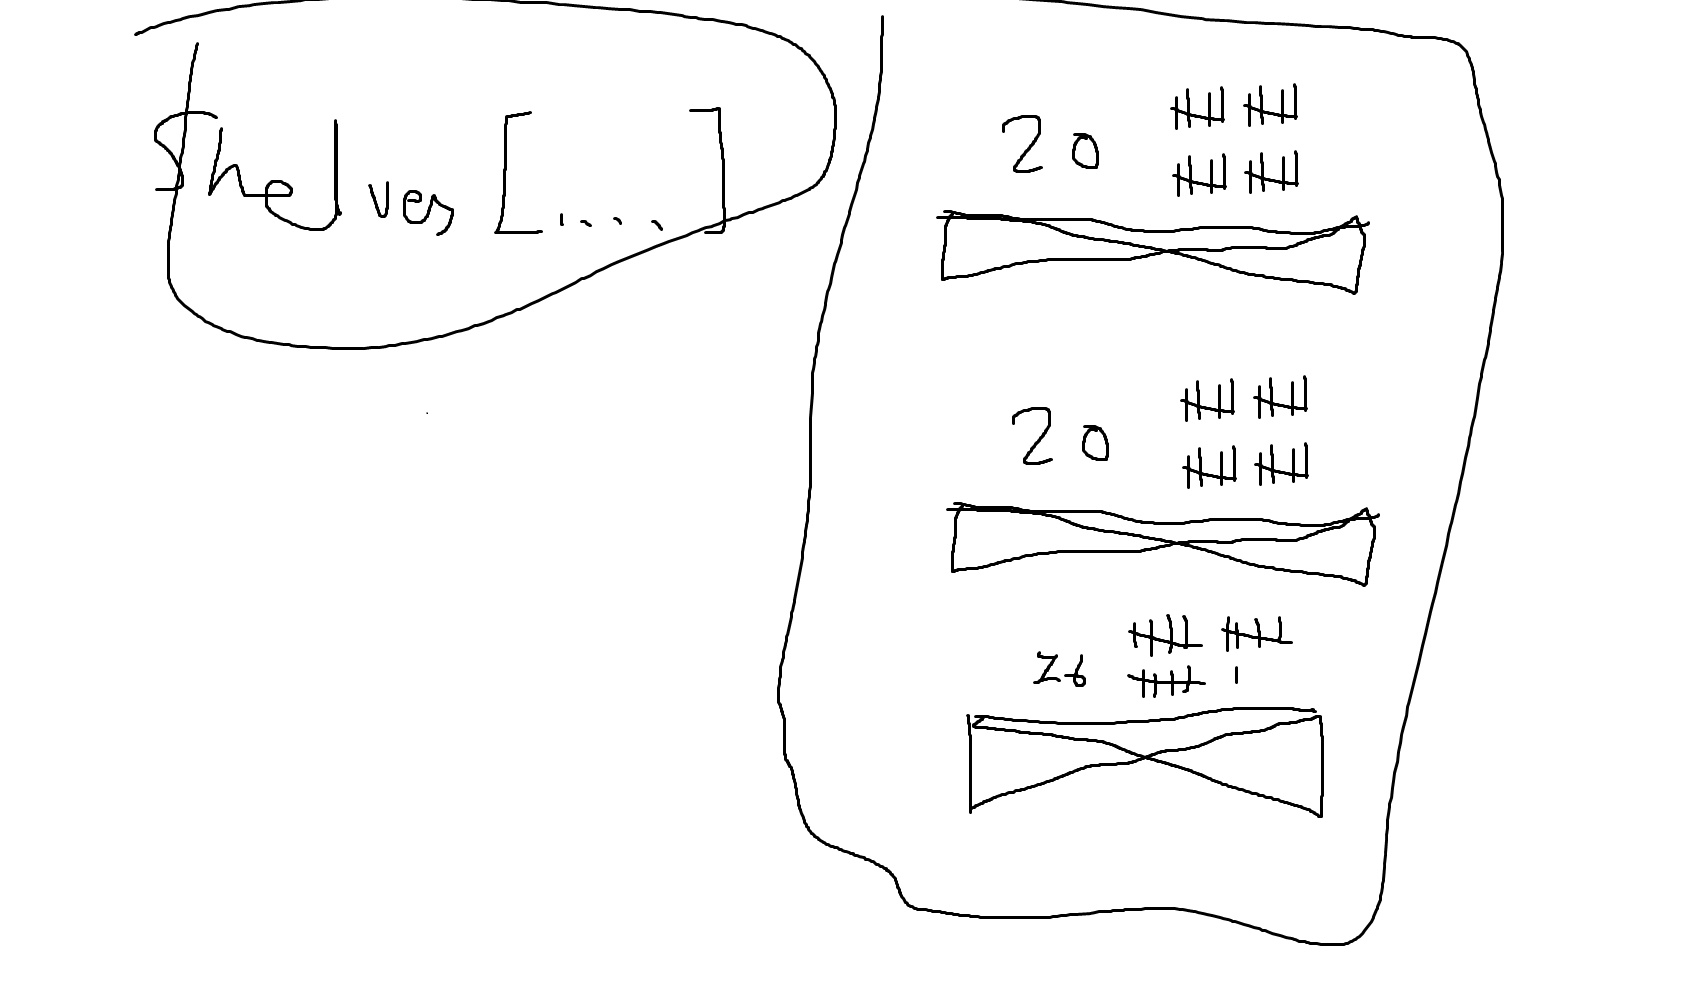 Shelves [....]
20
20
26